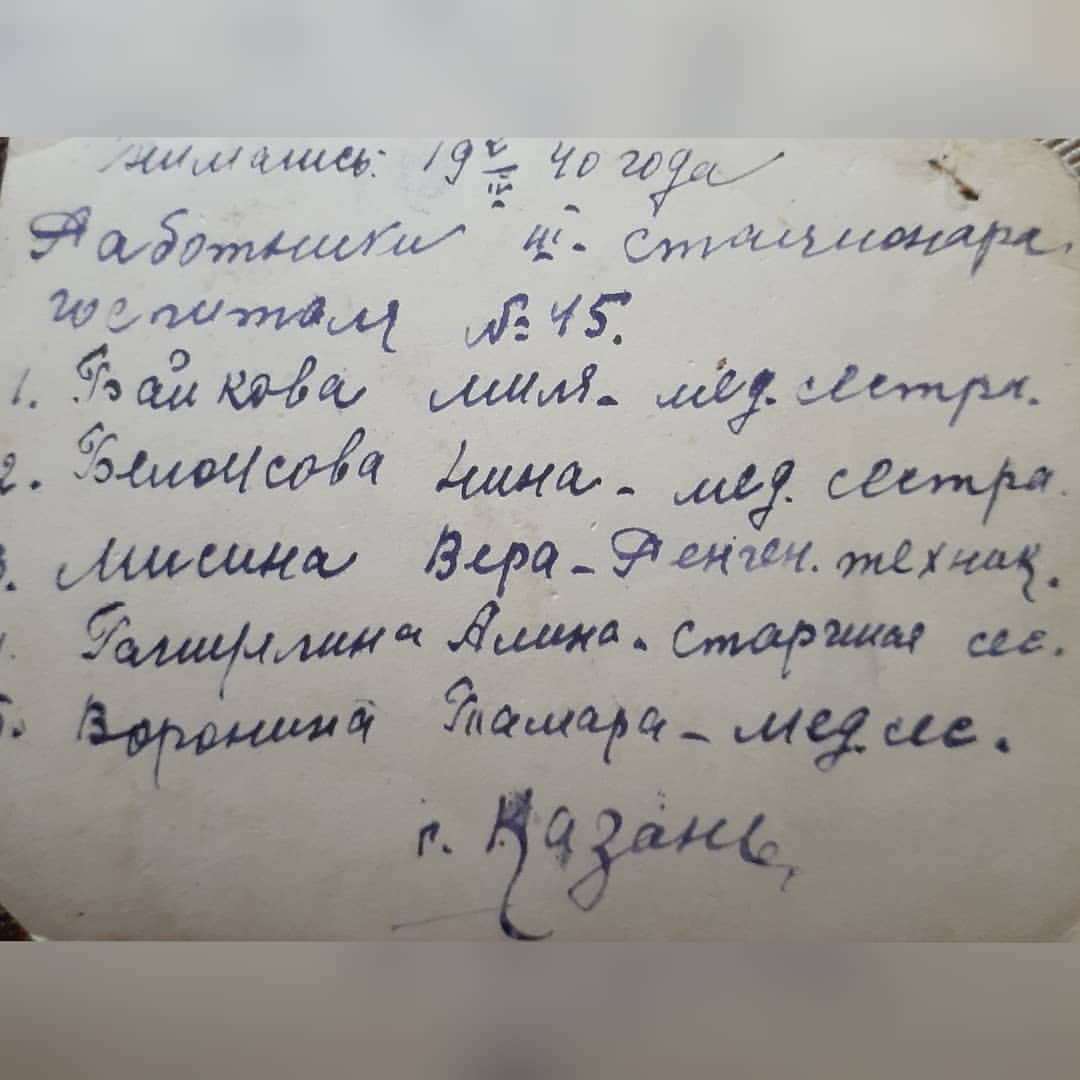 снимались: 19 2/IV 40 года
Работники III - стационара
госпиталя № 45.
1. Байкова Миля - мед. сестра.
2. Белоусова Нина - мед. сестра.
3. Мисина Вера - Ренген. техник.
Алина - старшая сес.
5. Воронина Тамара - мед. сес.
г. Казань